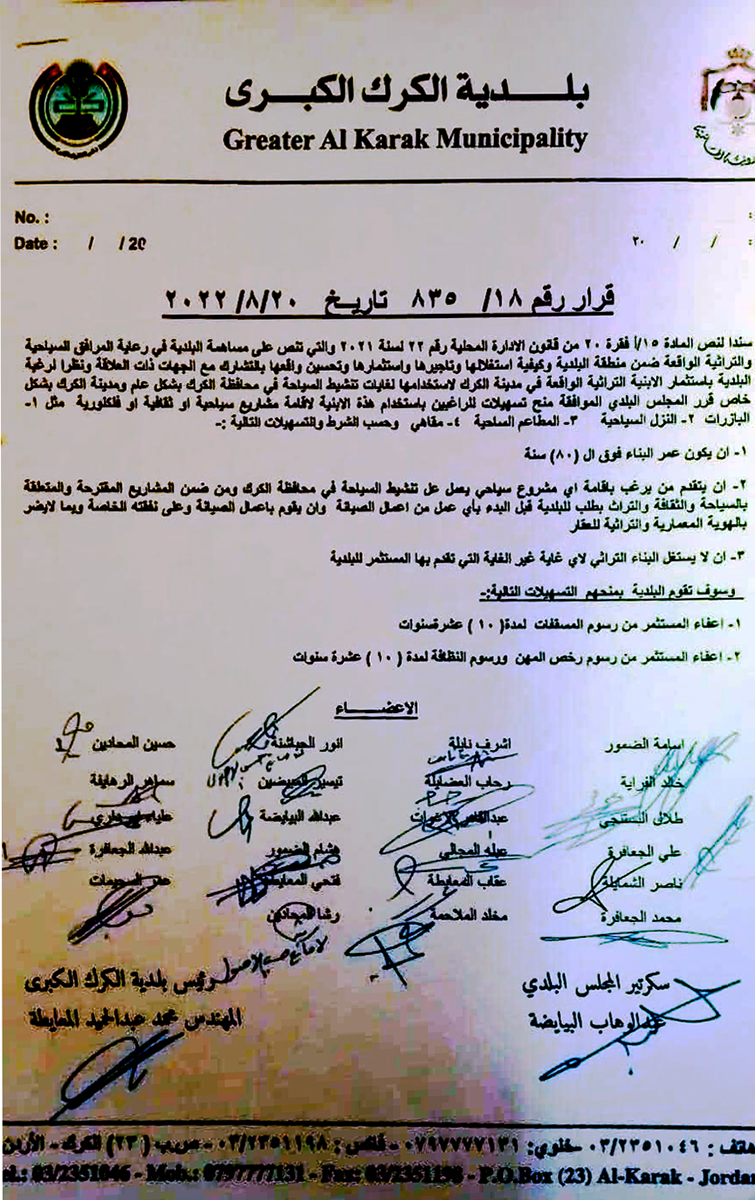 بلدية الكرك الكبرى
Greater Al Karak Municipality
No. :
Date : / / 20
٢٠ / / :
قرار رقم ١٨/ ٨٣٥ تاريخ ٢٠٢٢/٨/٢٠
سندا لنص المادة ١٥/أ فقرة ٢٠ من قانون الادارة المحلية رقم ٢٢ لسنة ٢٠٢١ والتي تنص على مساهمة البلدية في رعاية المرافق السياحية
والتراثية الواقعة ضمن منطقة البلدية وكيفية استغلالها وتاجيرها واستثمارها وتحسين واقعها بالتشارك مع الجهات ذات العلاقة ونظرا لرغبة
البلدية باستثمار الابنية التراثية الواقعة في مدينة الكرك لاستخدامها لغايات تنشيط السياحة في محافظة الكرك بشكل عام ومدينة الكرك بشكل
خاص قرر المجلس البلدي الموافقة منح تسهيلات للراغبين باستخدام هذة الابنية لاقامة مشاريع سياحية او ثقافية او فلكلورية مثل ١-
البازرات ٢- النزل السياحية ٣- المطاعم الساحية ٤- مقاهي وحسب الشرط والتسهيلات التالية :-
١- ان يكون عمر البناء فوق ال (٨٠) سنة
٢- ان يتقدم من يرغب باقامة اي مشروع سياحي يعمل عل تنشيط السياحة في محافظة الكرك ومن ضمن المشاريع المقترحة والمتطقة
بالسياحة والثقافة والتراث بطلب للبلدية قبل البدء بأي عمل من اعمال الصيانة وان يقوم باعمال الصيانة وعلى نفقته الخاصة وبما لايضر
بالهوية المعمارية والتراثية للعقار
٣- ان لا يستغل البناء التراثي لاي غاية غير الغاية التي تقدم بها المستثمر للبلدية
وسوف تقوم البلدية بمنحهم التسهيلات التالية:-
١- اعفاء المستثمر من رسوم المسقفات لمدة( ١٠ ) عشرةسنوات
٢- اعفاء المستثمر من رسوم رخص المهن ورسوم النظافة لمدة( ١٠ ) عشرة سنوات
الاعضـــــاء
اسامة الضمور اشرف نايلة انور الحباشنة حسين المحادين
خالد الفراية رحاب العضايلة تيسير المبيضين سماهر الرهايفة
طلال عبدالله البيايضة
علي الجعافرة عبله المجالي هشام الضمور عبدالله الجعافرة
ناصر الشمايلة عقاب المعايطة فتحي المعايطة
محمد الجعافرة مخلد الملاحمة رشا المحادين
لا مانع حسب الاصول
سكرتير المجلس البلدي رئيس بلدية الكرك الكبرى
عبدالوهاب البيايضة المهندس محمد عبدالحميد المعايطة
هاتف : ٠٣/٢٣٥١٠٤٦ - خلوي: ٠٧٩٧٧٧٧١٣١ - فاكس : ٠٣/٢٣٥١١٩٨ - ص.ب ( ٢٣) الكرك - الأردن
el.: 03/2351046 - Mob.: 0797777131 - Fax: 03/2351198 - P.O.Box (23) Al-Karak - Jorda